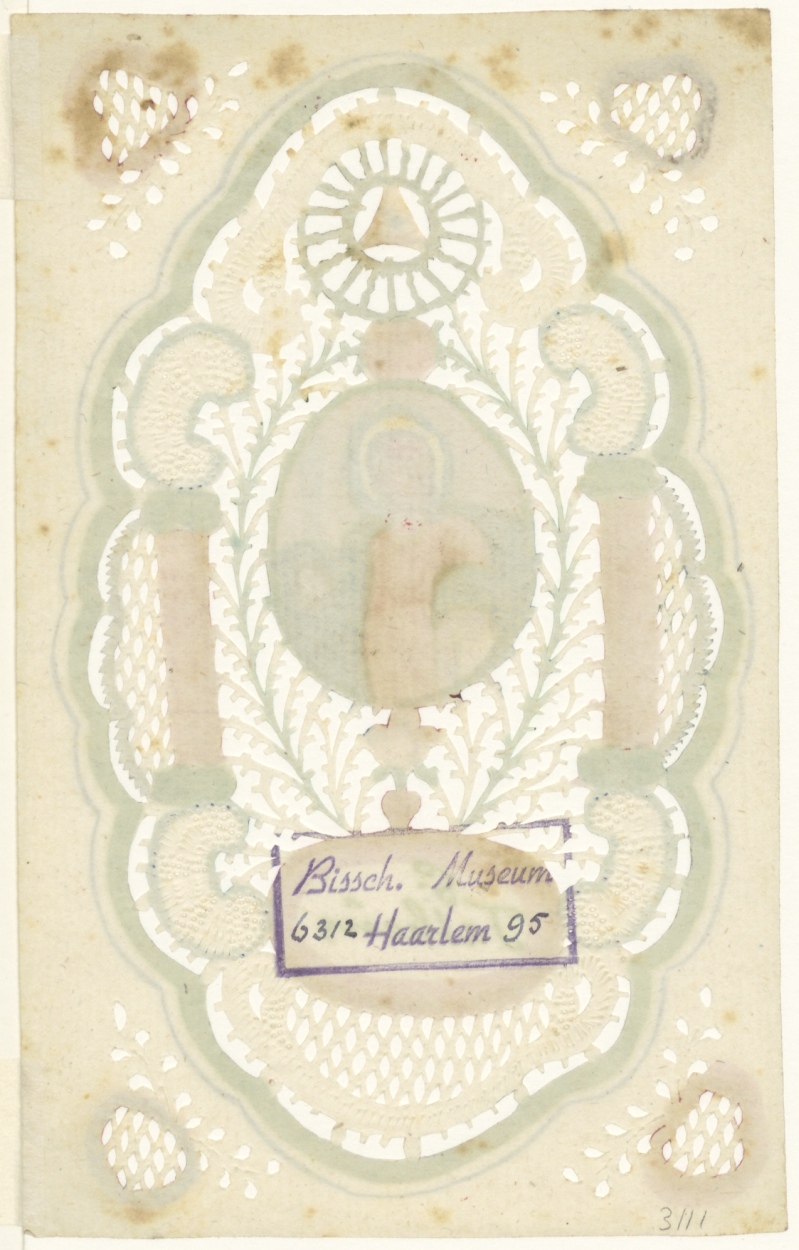 Bissch. Museum
6312 Haarlem 95
3111